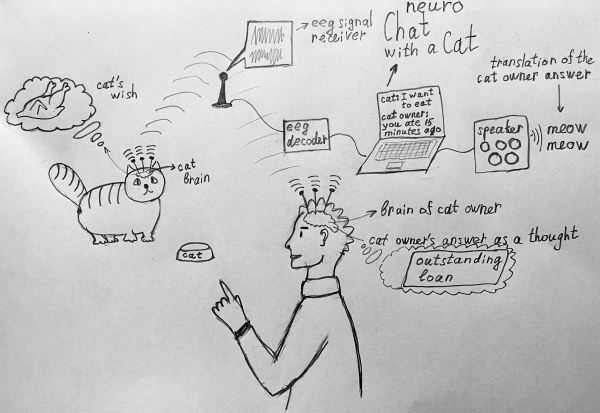 neuro
Chat
with a Cat
eeg signal
receiver
translation of the
cat owner answer
cat's
wish
cat: I want
to eat
cat owner:
you ate 15
minutes ago
eeg
decoder
speaker
meow
meow
cat
Brain
Brain of cat owner
cat owner's answer as a thought
outstanding
loan
cat